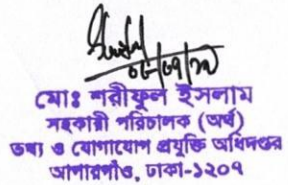 ০৮/০৭/১৯
মোঃ শরীফুল ইসলাম
সহকারী পরিচালক (অর্থ)
তথ্য ও যোগাযোগ প্রযুক্তি অধিদপ্তর
আগারগাঁও, ঢাকা-১২০৭